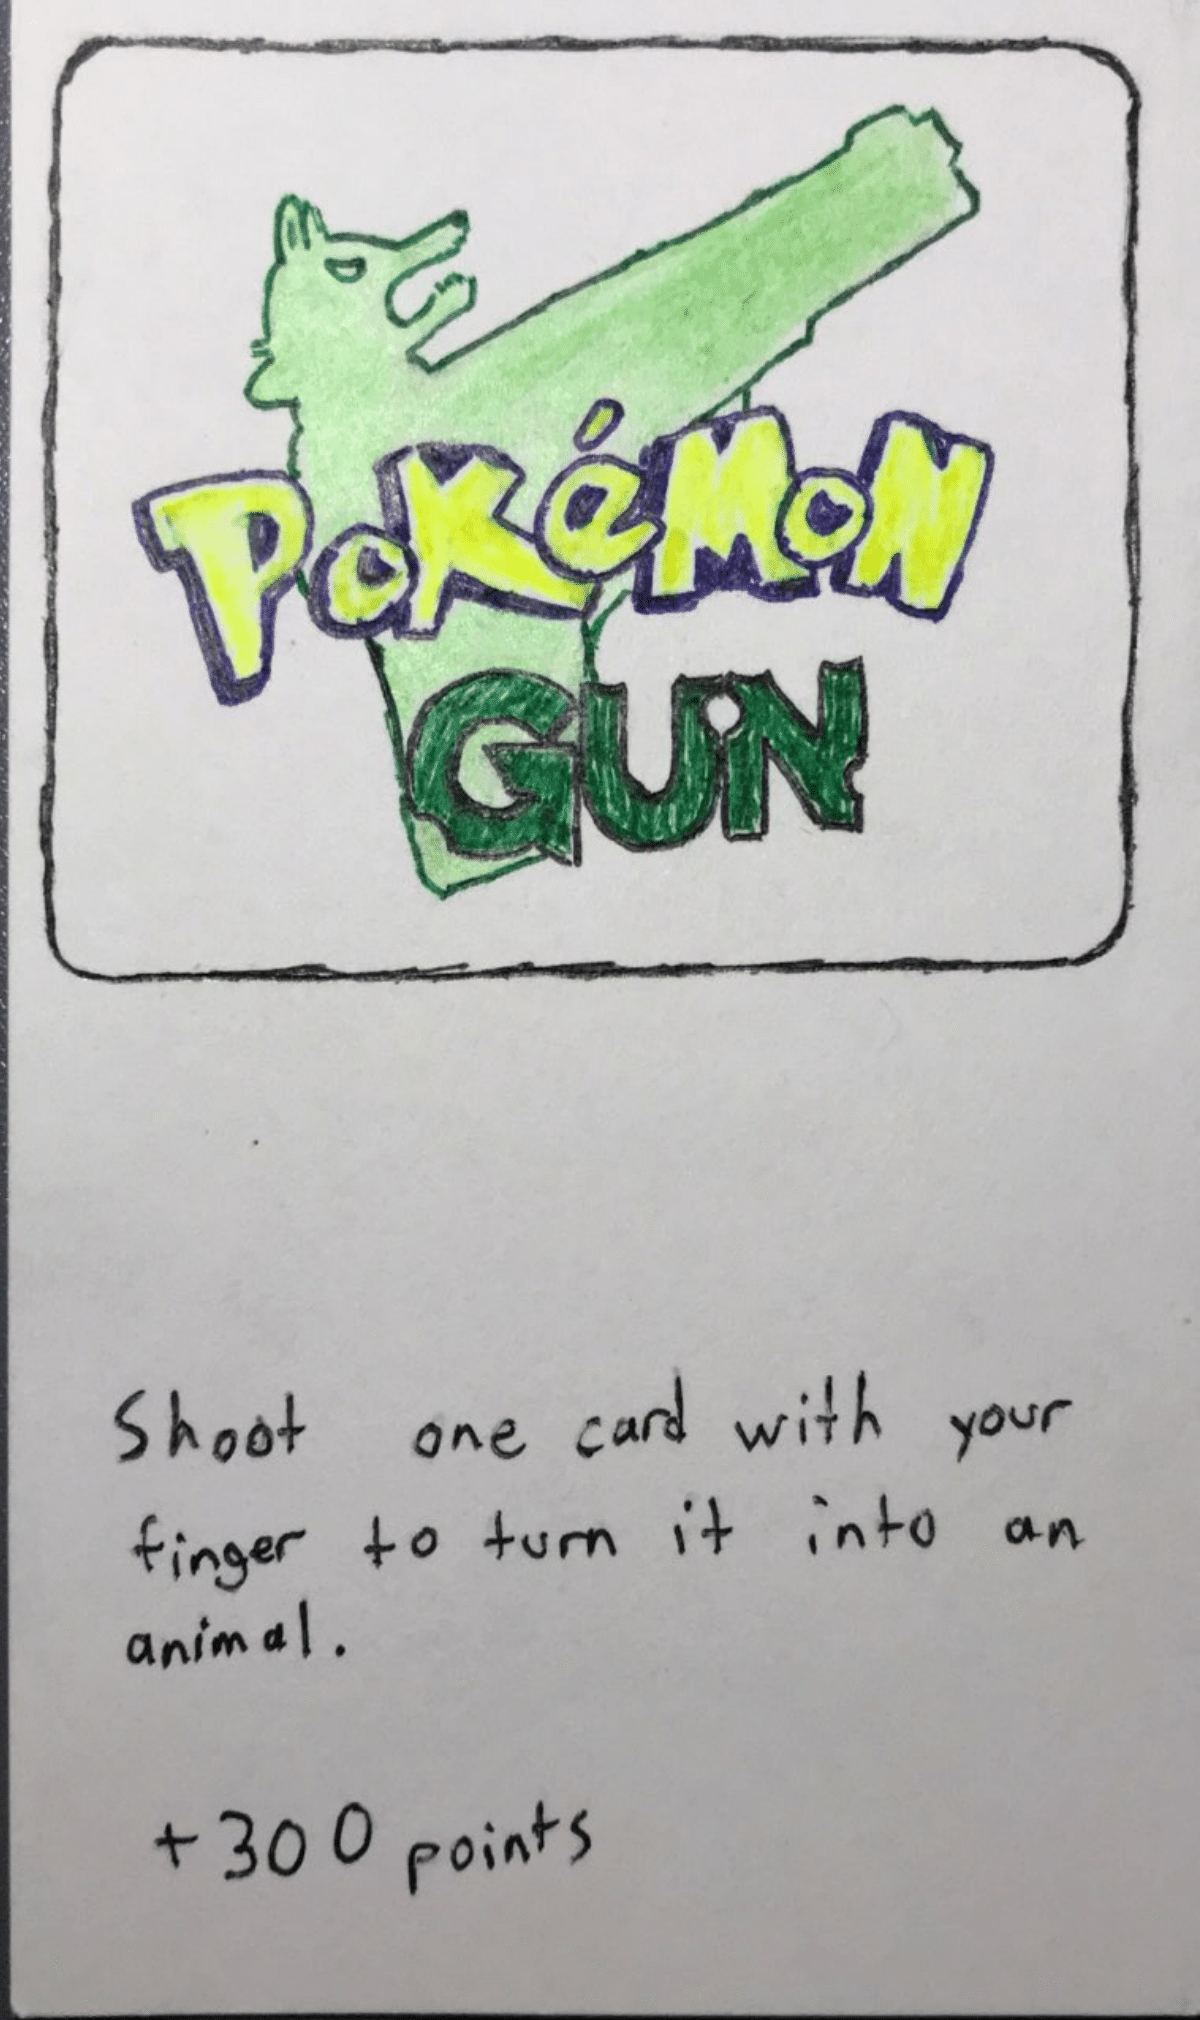 POKéMON
GUN
Shoot one card with your
finger to turn it into an
animal.
+300 points